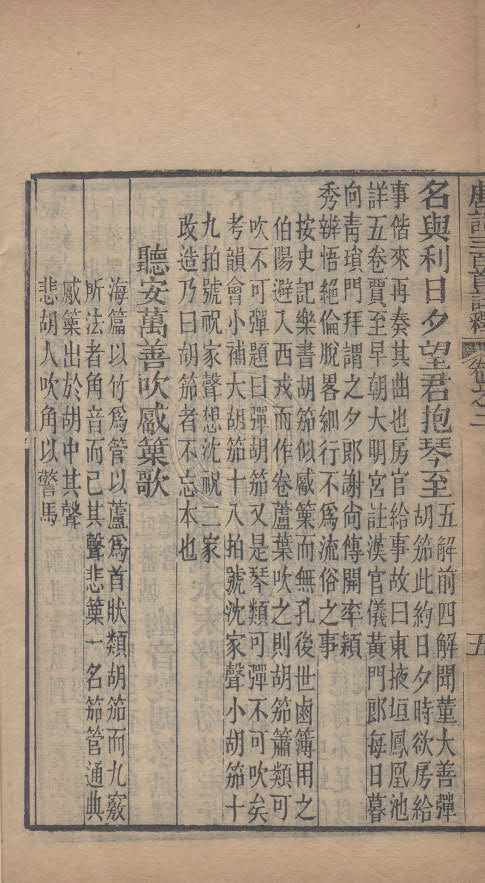 唐詩三百首註 卷之二 五
名與利日夕望君抱琴至五解前四解聞董大善彈
胡笳此約日夕時欲房給
事偕來再奏其曲也房官給事故曰東掖垣鳳凰池
詳五卷賈至早朝大明宮註漢官儀黃門郎每日暮
向青瑣門拜謂之夕郎謝尚傳開率穎
秀辨悟絕倫脫畧細行不爲流俗之事
按史記樂書胡笳似觱篥而無孔後世鹵簿用之
伯陽避入西戎而作卷蘆葉吹之則胡笳簫類可
吹不可彈題曰彈胡笳又是琴類可彈不可吹矣
考韻會小補大胡笳十八拍號沈家聲小胡笳十
九拍號祝家聲想沈祝二家
改造乃曰胡笳者不忘本也
聽安萬善吹觱篥歌
海篇以竹爲管以蘆爲首狀類胡笳而九竅
所法者角音而已其聲悲篥一名笳管通典
觱篥出於胡中其聲
悲胡人吹角以警馬